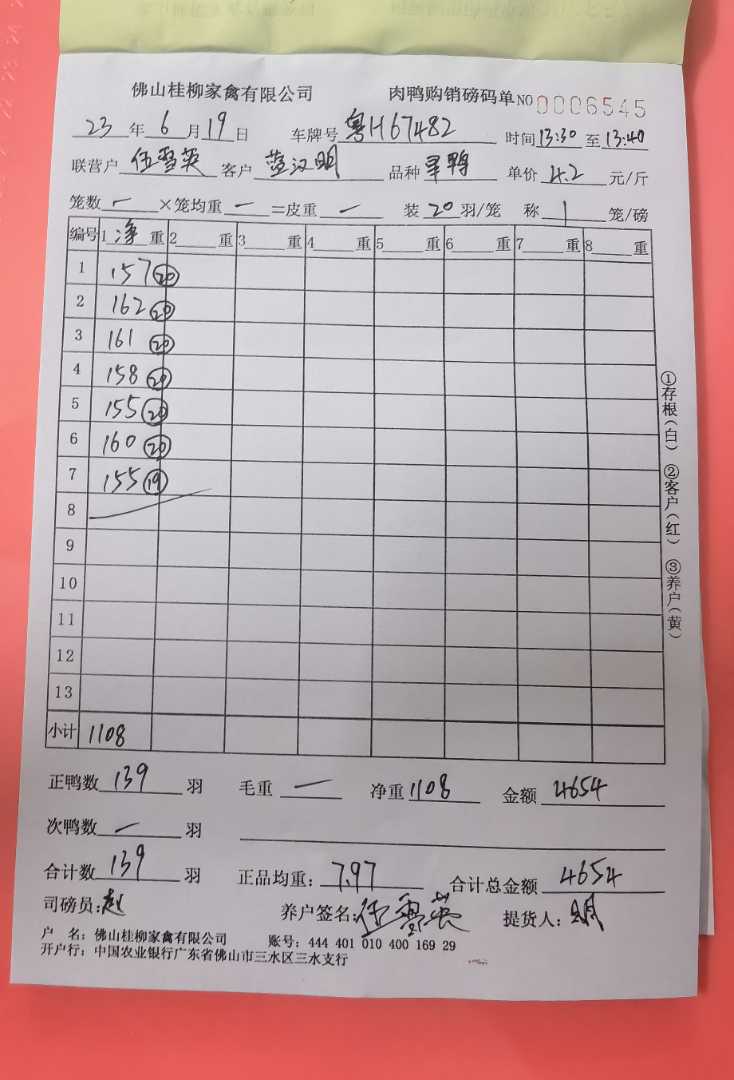 佛山桂柳家禽有限公司 肉鸭购销磅码单 NO 0006545
23 年 6 月 19 日 车牌号 粤H67482 时间 13:30 至 13:40
联营户 伍雪英 客户 蓝汉明 品种 旱鸭 单价 4.2 元/斤
笼数 — ×笼均重 — =皮重 — 装 20 羽/笼 称 1 笼/磅
编号 1 净 重 2 重 3 重 4 重 5 重 6 重 7 重 8 重
1 157 ⑳
2 162 ⑳
3 161 ⑳
4 158 ⑳
5 155 ⑳
6 160 ⑳
7 155 ⑲
8
9
10
11
12
13
小计 1108
正鸭数 139 羽 毛重 — 净重 1108 金额 4654
次鸭数 — 羽
合计数 139 羽 正品均重: 7.97 合计总金额 4654
司磅员: 赵 养户签名: 伍雪英 提货人: 明
户 名: 佛山桂柳家禽有限公司 账号: 444 401 010 400 169 29
开户行: 中国农业银行广东省佛山市三水区三水支行
①存根(白) ②客户(红) ③养户(黄)